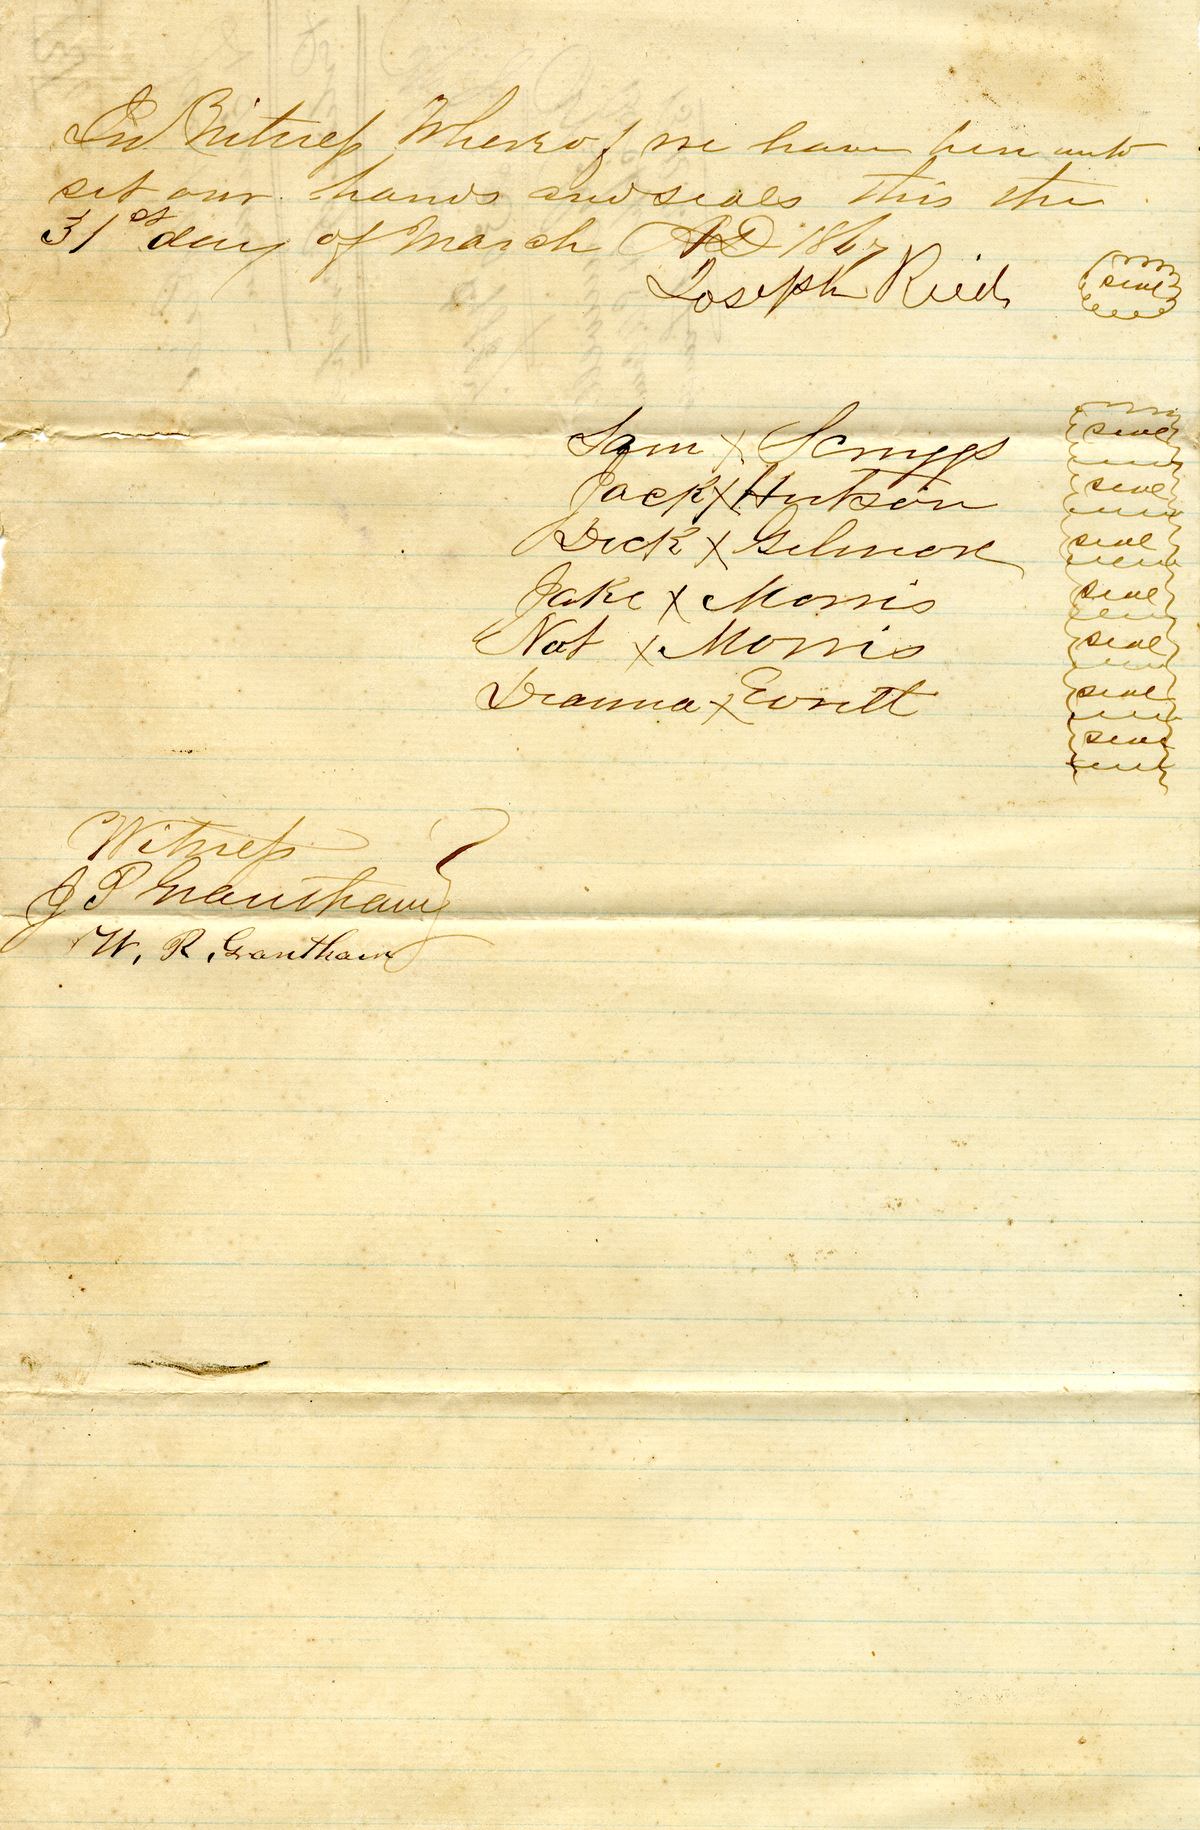 In Witness Whereof we have here unto
set our hands and seals this the
31st day of March AD 1867
Joseph Reid seal
Sam X Scruggs seal
Jack X Hutson seal
Dick X Gilmore seal
Jake X Morris seal
Nat X Morris seal
X Evritt seal
seal
Witness
J P Grantham
W. R. Grantham